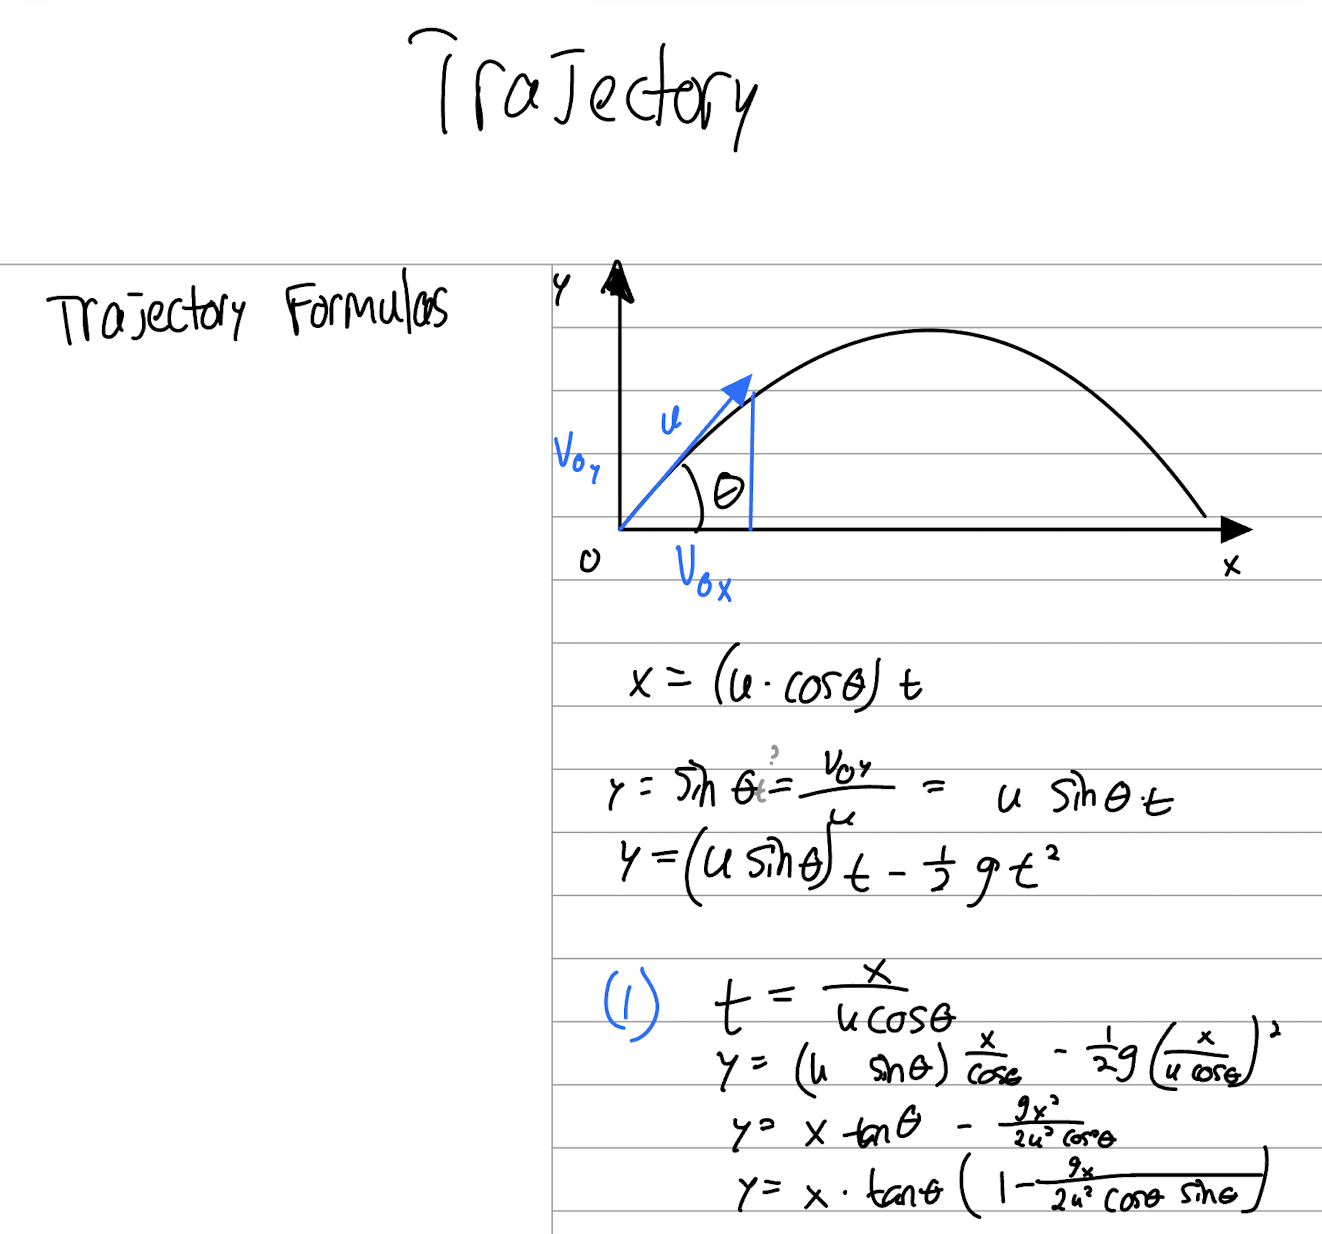 Trajectory
Trajectory Formulas
y
u
V₀y
θ
0
V₀x
x
x = (u · cosθ) t
?
y = sin θt = V₀y / u = u sinθ·t
y = (u sinθ) t - 1/2 g t²
(1) t = x / u cosθ
y = (u sinθ) x / cosθ - 1/2 g (x / u cosθ)²
y = x tanθ - gx² / 2u² cos²θ
y = x · tanθ (1 - gx / 2u² cosθ sinθ)